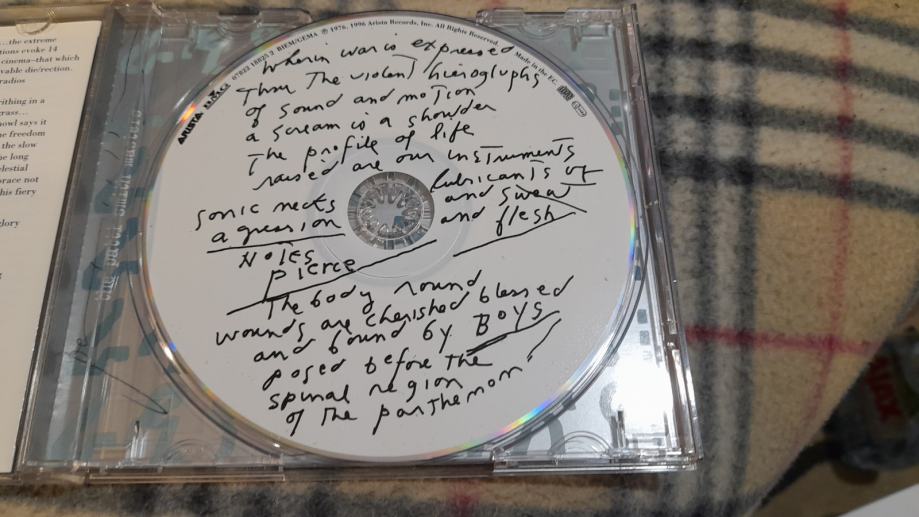 ...the extreme
tions evoke 14
cinema–that which
vable die/rection.
radios
rithing in a
grass...
howl says it
he freedom
the slow
he long
elestial
brace not
his fiery
glory
the patti smith masters
ARISTA
07822 18825 2 BIEM/GEMA ℗ 1976, 1996 Arista Records, Inc. All Rights Reserved. Made in the E.C.
wherin war is expressed
Thru The violent hieroglyphs
of sound and motion
a scream is a shoulder
The profile of life
raised are our instruments
lubricants of
sonic necks
and sweat
agression
and flesh
Notes
pierce
The body round
wounds are cherished blessed
and bound by Boys
posed before the
spinal region
of the pantheman
AJAX